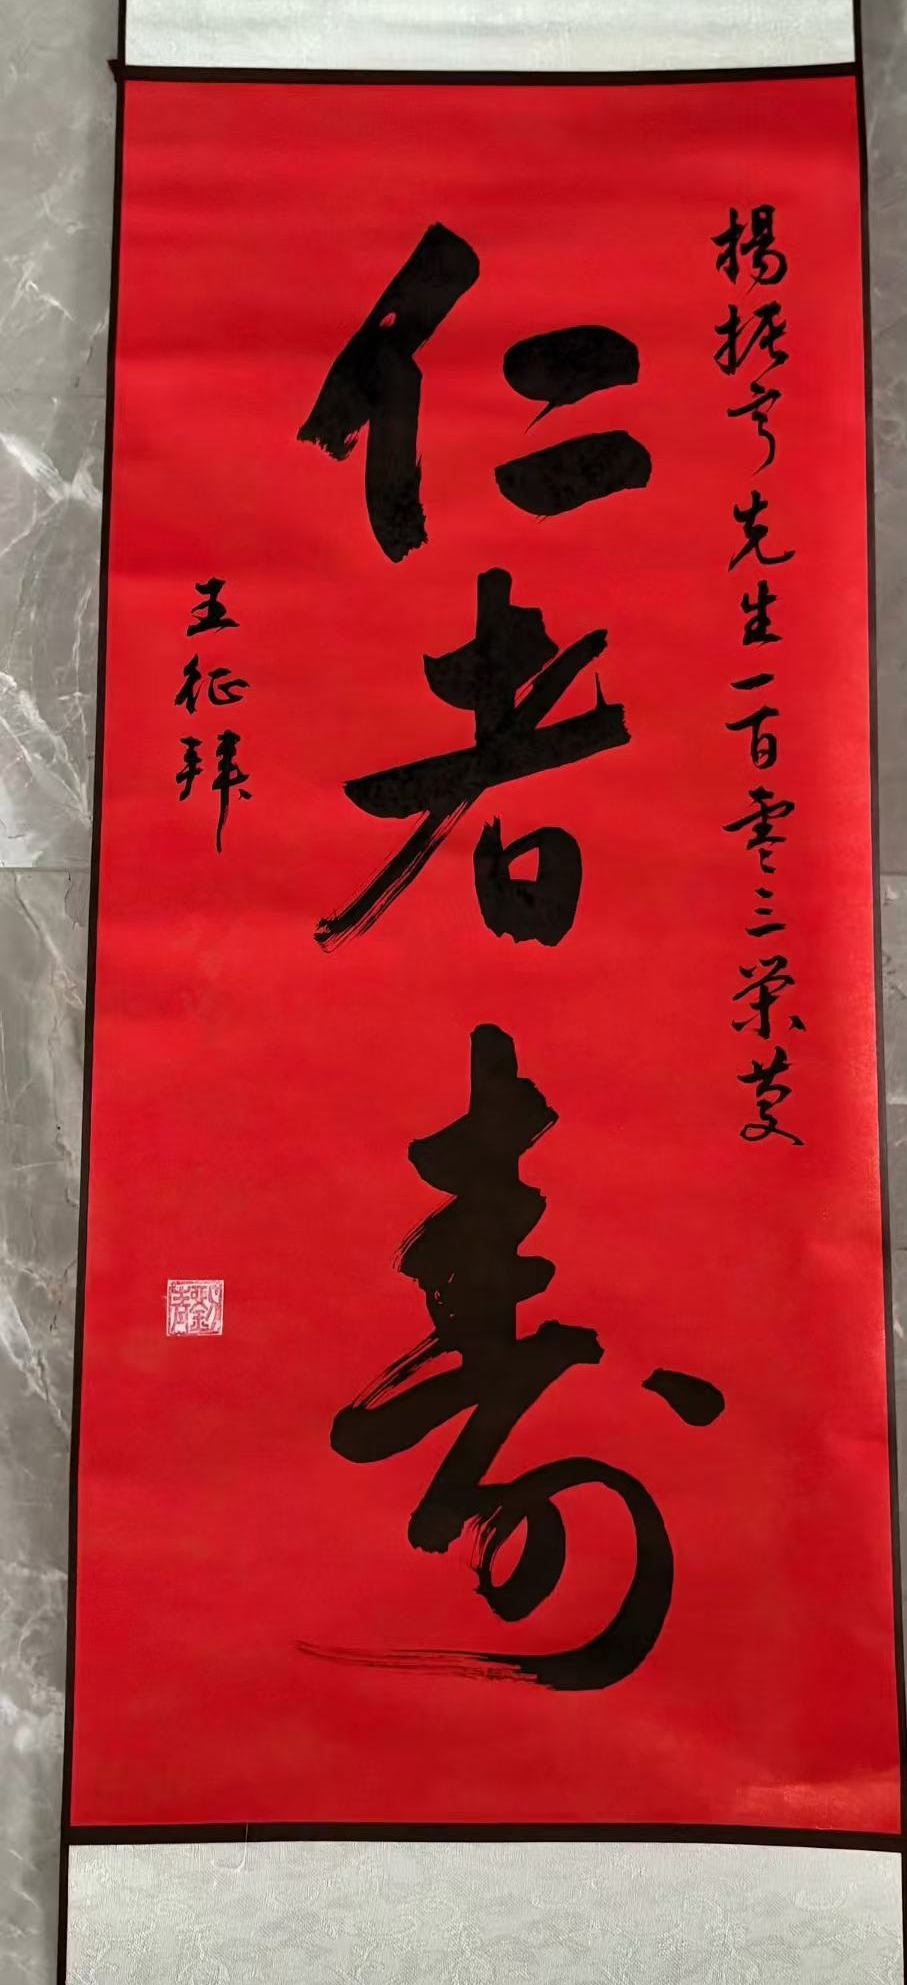 楊振亨先生一百零三荣
仁者寿
王征拜